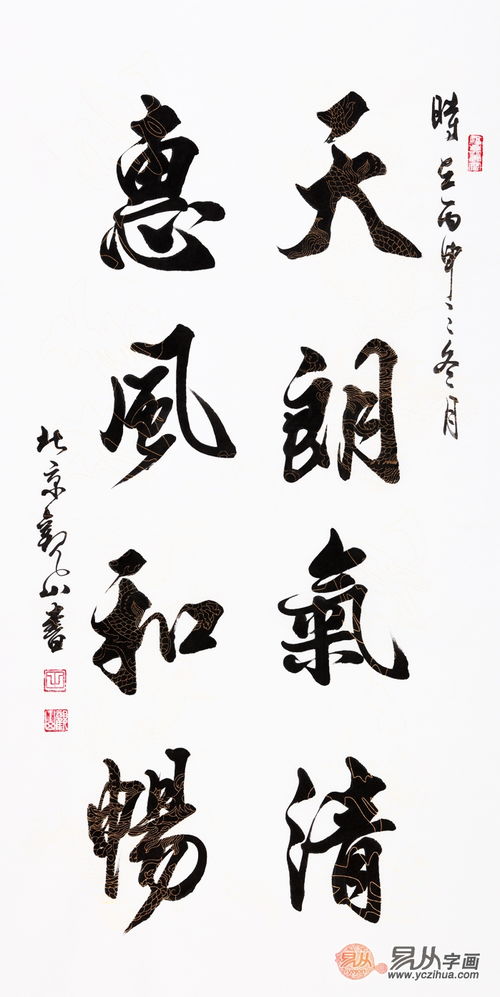 時在丙申之冬月
天朗氣清
惠風和暢
北京觀山書
易从字画
www.yczihua.com